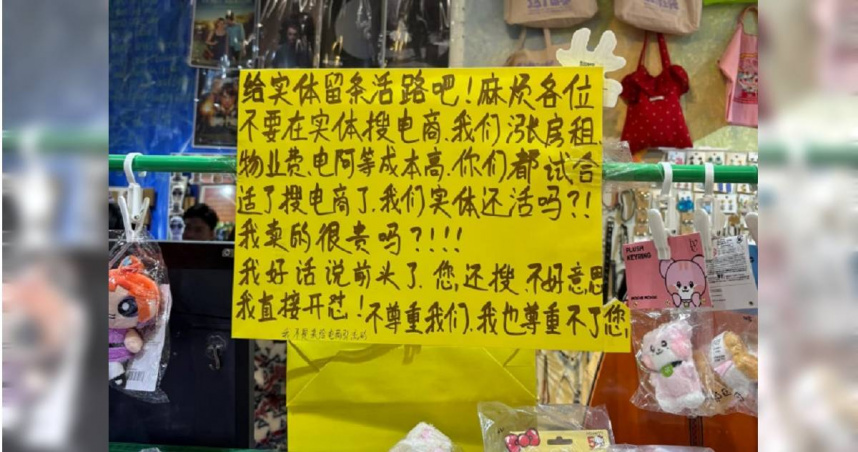 给实体留条活路吧！麻烦各位
不要在实体搜电商.我们涨房租.
物业费、电阿等成本高.你们都试合
适了搜电商了.我们实体还活吗？！
我卖的很贵吗？！！！
我好话说前头了.您还搜.不好意思
我直接开怼！不尊重我们.我也尊重不了您.
PLUSH
KEYRING